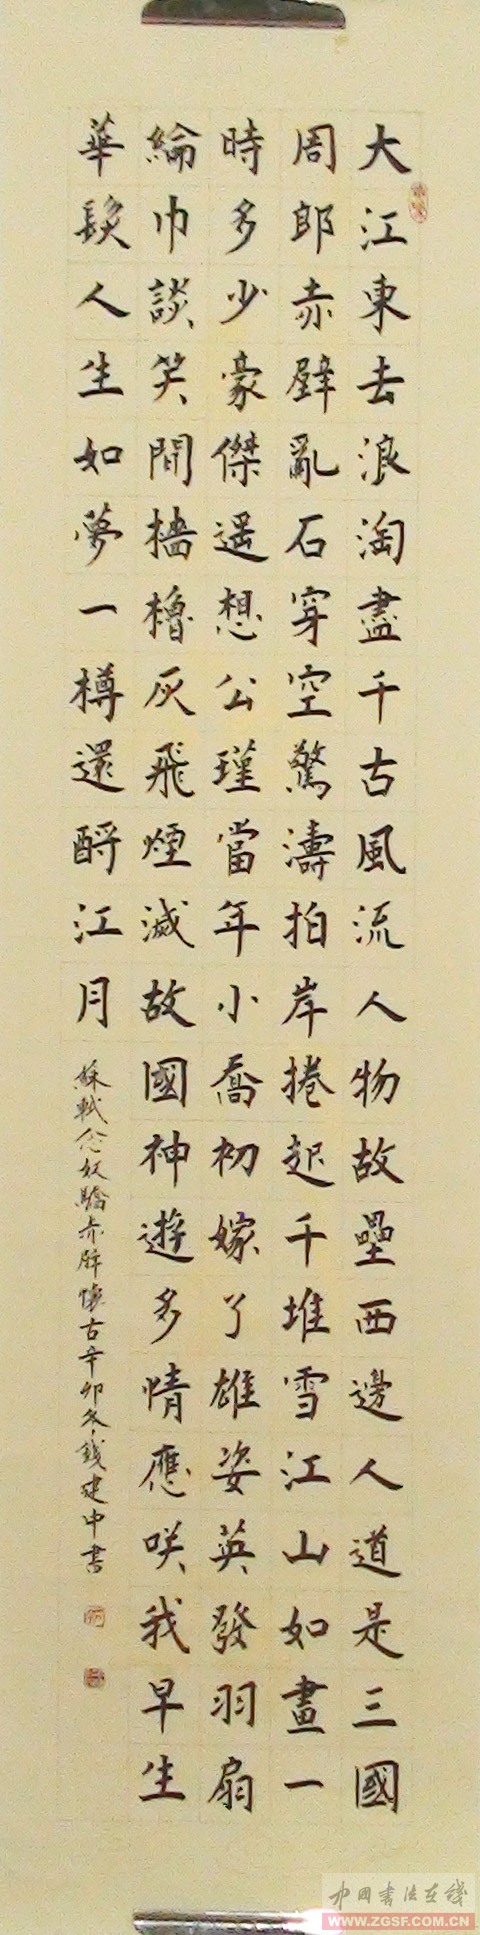 大江東去浪淘盡千古風流人物故壘西邊人道是三國
周郎赤壁亂石穿空驚濤拍岸捲起千堆雪江山如畫一
時多少豪傑遥想公瑾當年小喬初嫁了雄姿英發羽扇
綸巾談笑間檣櫓灰飛煙滅故國神遊多情應咲我早生
華髮人生如夢一樽還酹江月
蘇軾念奴驕赤壁懷古辛卯冬錢建中書
中国书法在线
WWW.ZGSF.COM.CN